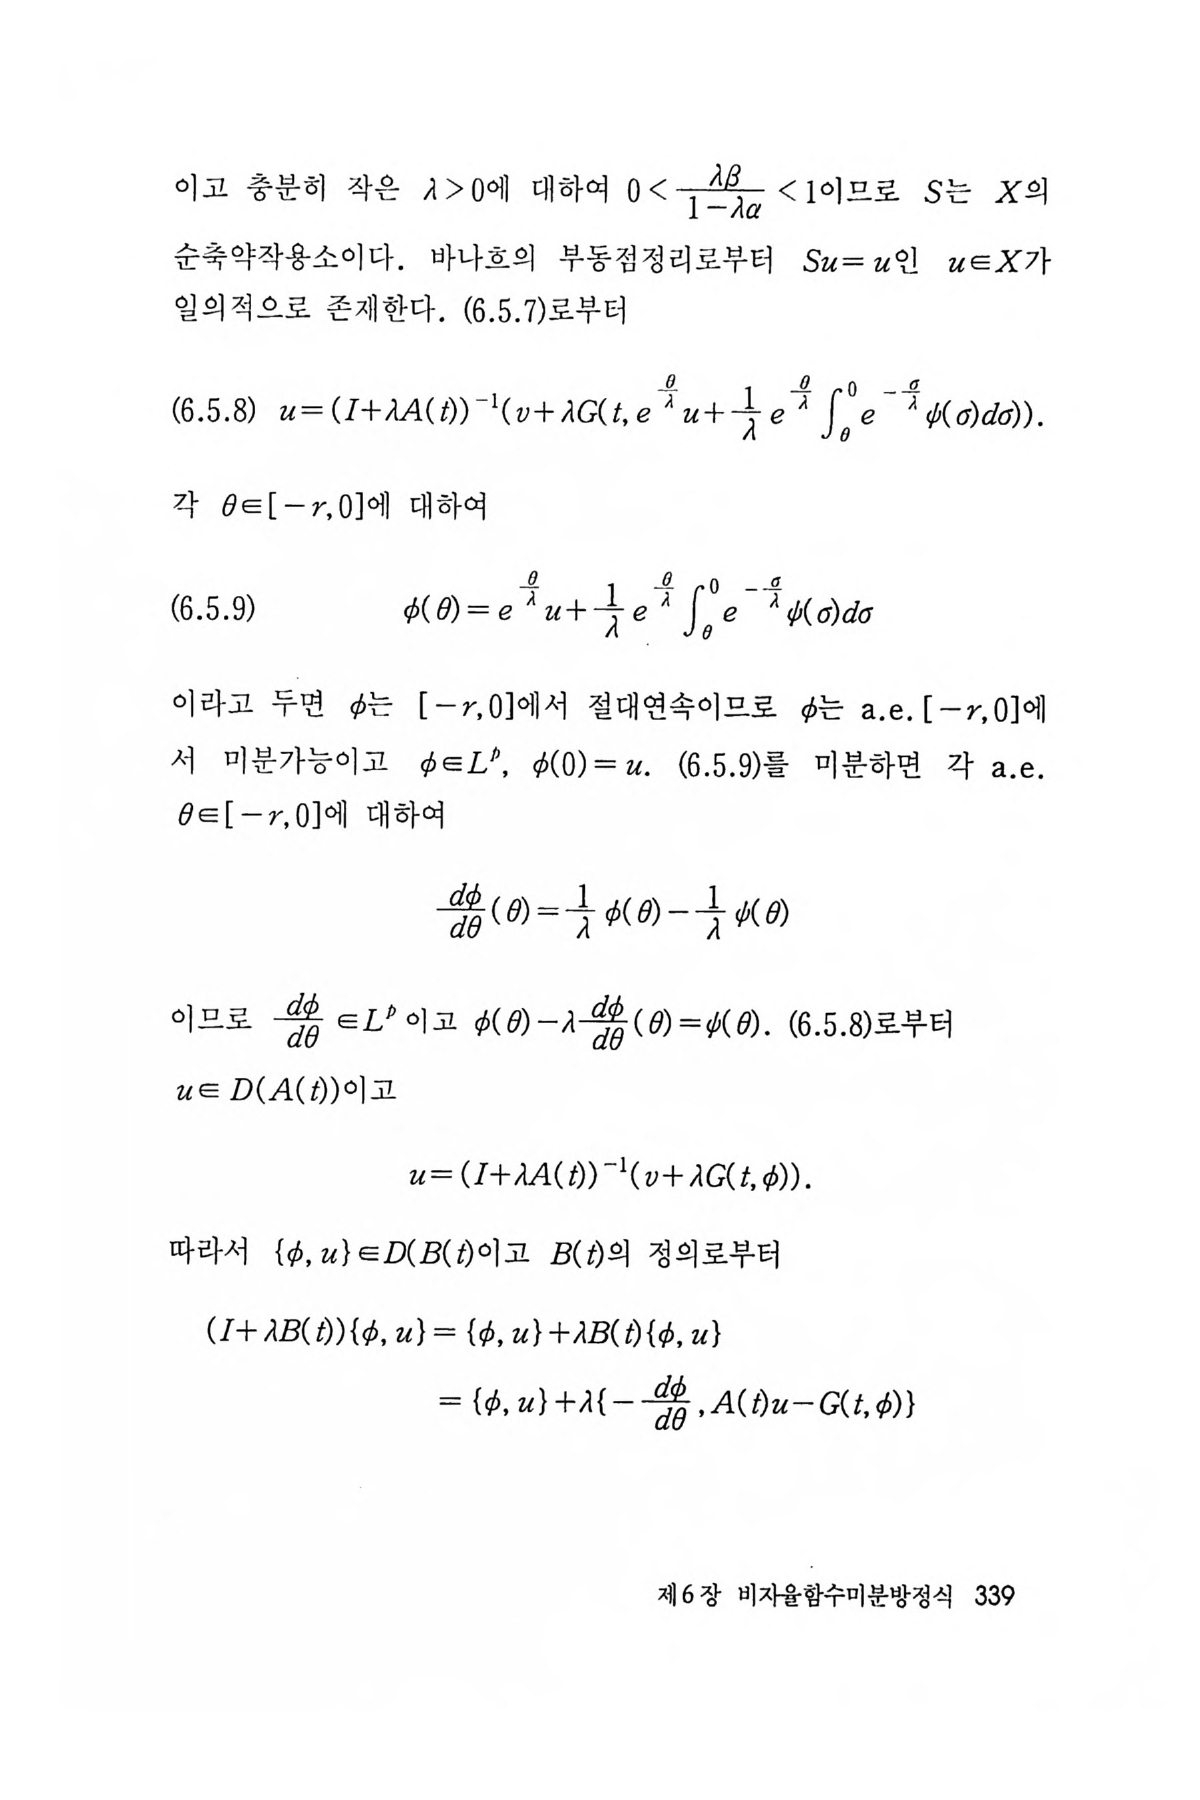 이고 충분히 작은 λ>0에 대하여 0 < \frac{λβ}{1-λα} < 1이므로 S는 X의
순축약작용소이다. 바나흐의 부동점정리로부터 Su=u인 u∈X가
일의적으로 존재한다. (6.5.7)로부터
(6.5.8) u=(I+λA(t))^{-1}(v+λG(t, e^{\frac{θ}{λ}}u+\frac{1}{λ}e^{\frac{θ}{λ}}∫_θ^0 e^{-\frac{σ}{λ}}ψ(σ)dσ)).
각 θ∈[-r,0]에 대하여
(6.5.9) φ(θ)=e^{\frac{θ}{λ}}u+\frac{1}{λ}e^{\frac{θ}{λ}}∫_θ^0 e^{-\frac{σ}{λ}}ψ(σ)dσ
이라고 두면 φ는 [-r,0]에서 절대연속이므로 φ는 a.e. [-r,0]에
서 미분가능이고 φ∈L^p, φ(0)=u. (6.5.9)를 미분하면 각 a.e.
θ∈[-r,0]에 대하여
\frac{dφ}{dθ}(θ)=\frac{1}{λ}φ(θ)-\frac{1}{λ}ψ(θ)
이므로 \frac{dφ}{dθ}∈L^p이고 φ(θ)-λ\frac{dφ}{dθ}(θ)=ψ(θ). (6.5.8)로부터
u∈D(A(t))이고
u=(I+λA(t))^{-1}(v+λG(t,φ)).
따라서 {φ,u}∈D(B(t)이고 B(t)의 정의로부터
(I+λB(t)){φ,u}={φ,u}+λB(t){φ,u}
={φ,u}+λ{-\frac{dφ}{dθ},A(t)u-G(t,φ)}
제6장 비자율함수미분방정식 339